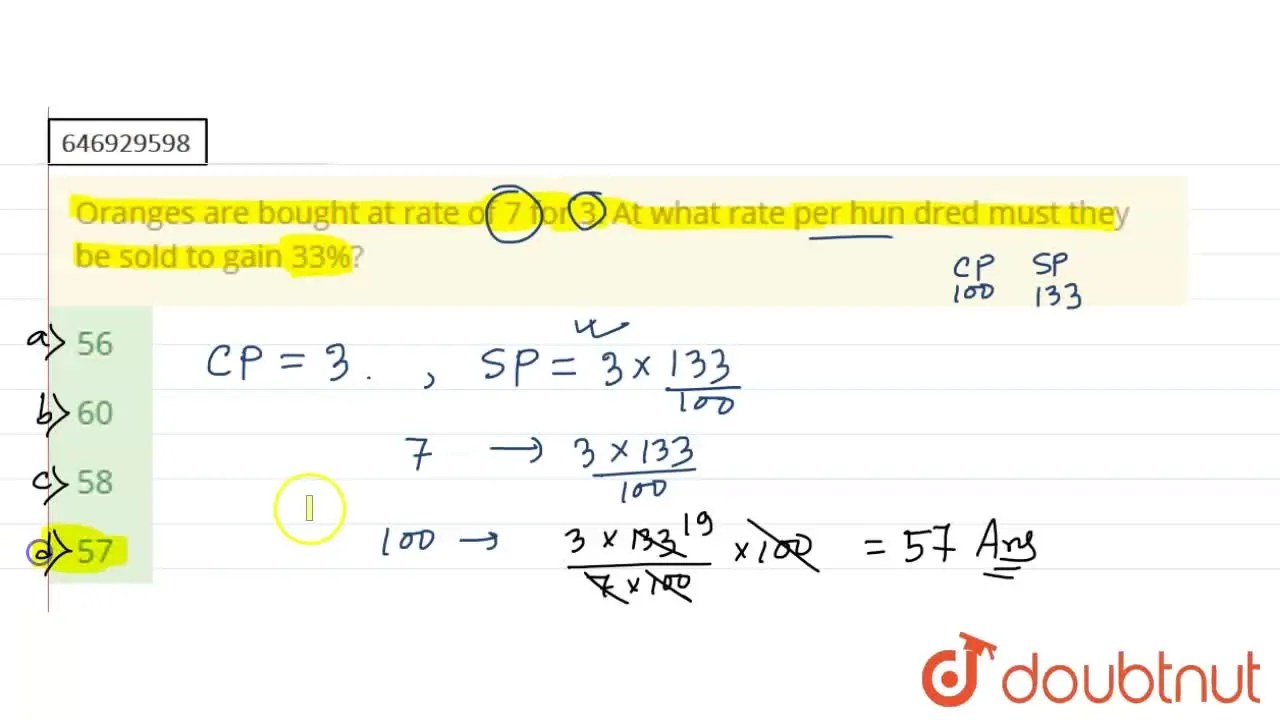 646929598
Oranges are bought at rate of 7 for 3. At what rate per hun dred must they
be sold to gain 33%?
CP SP
100 133
a) 56
CP = 3. , SP = 3 × 133/100
b) 60
7 → 3 × 133/100
c) 58
d) 57
100 → 3 × 133 19/7 × 100 × 100 = 57 Ans
doubtnut